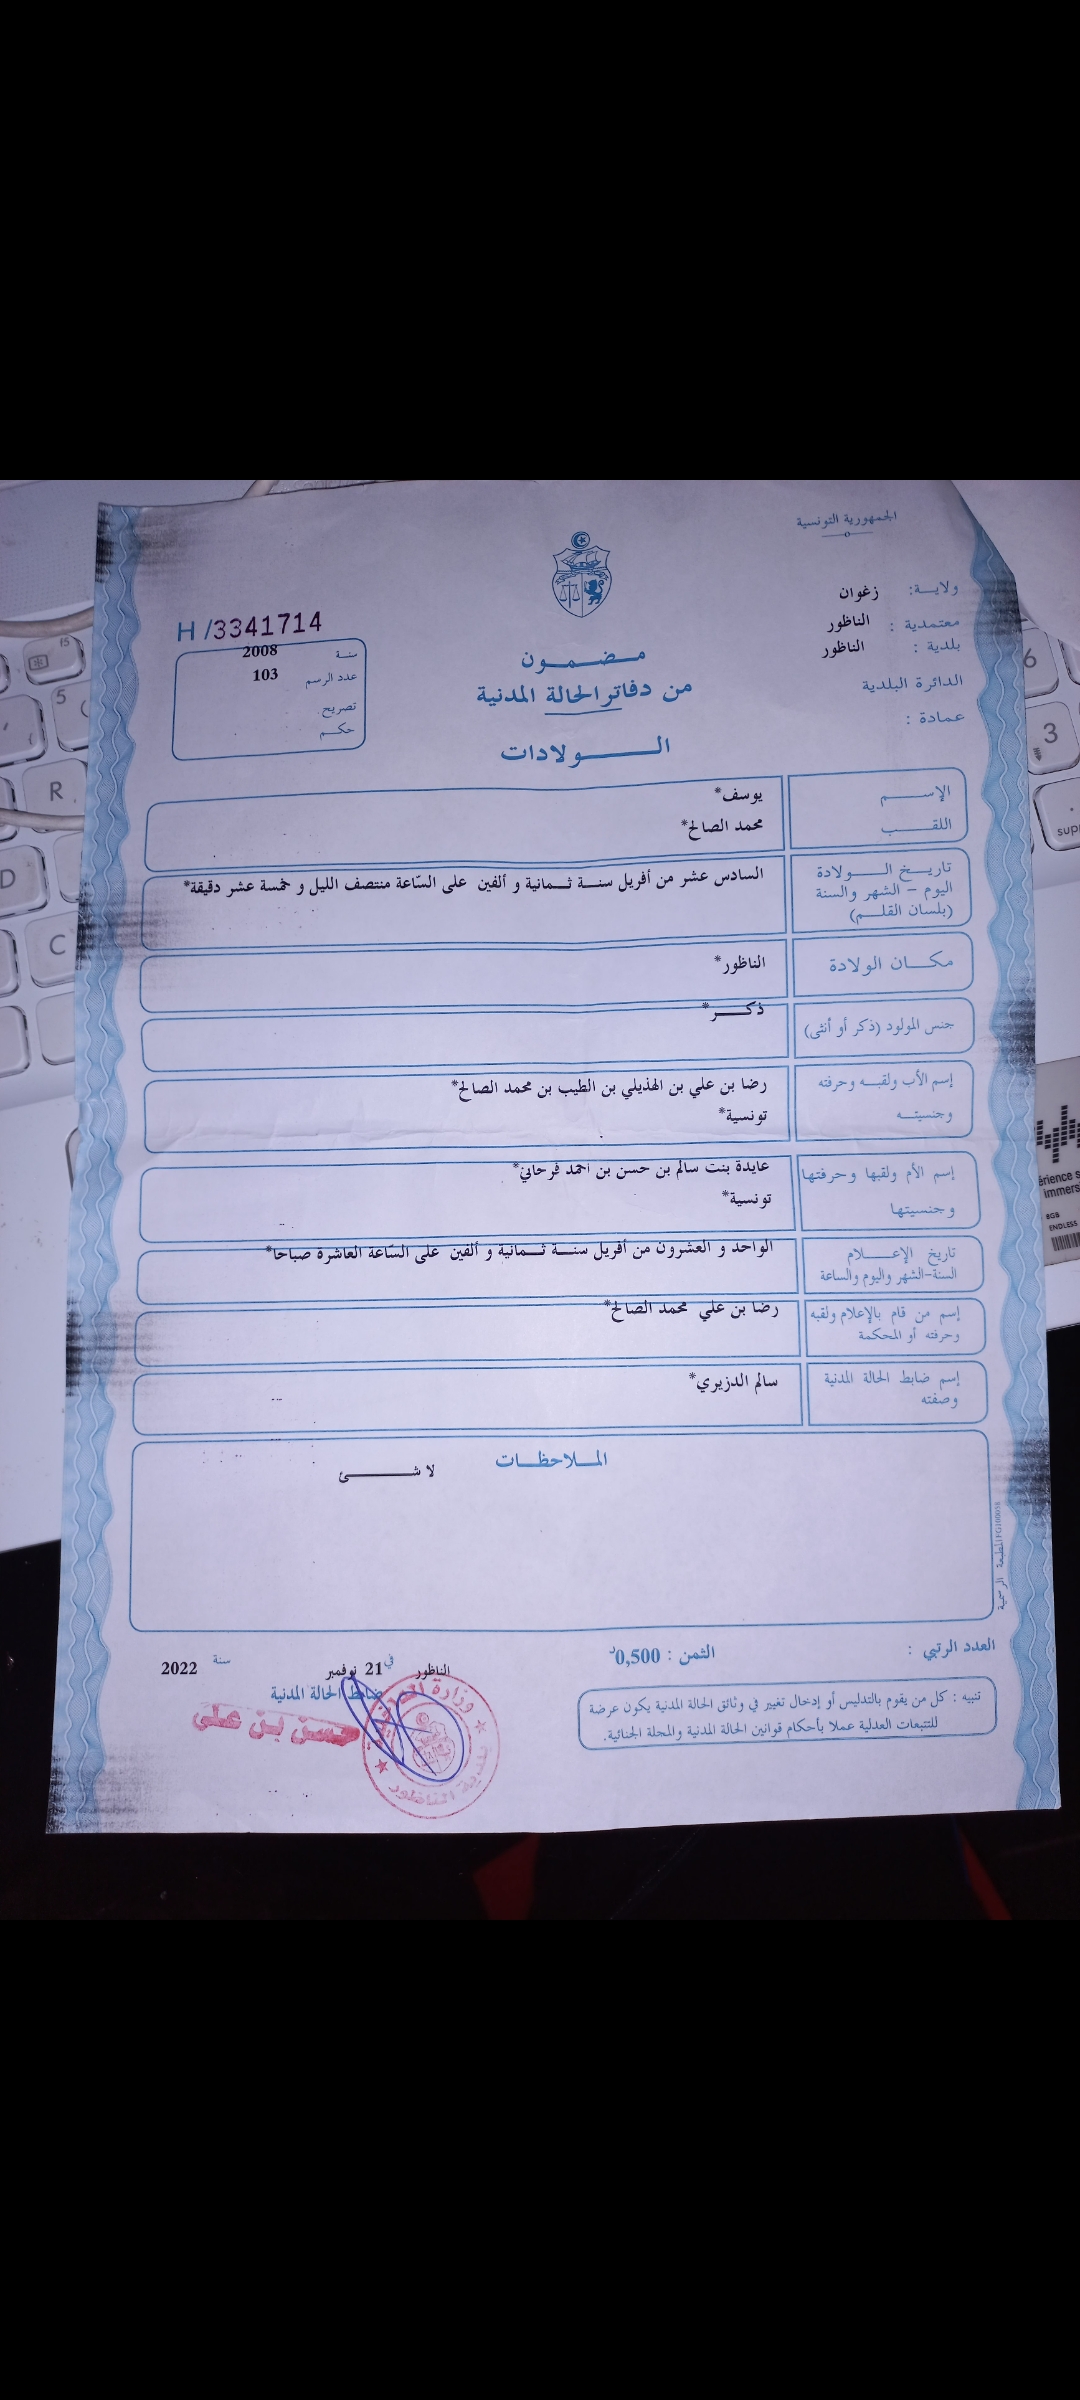 الجمهورية التونسية
ولايـــة: زغوان
معتمدية : الناظور
بلدية : الناظور
الدائرة البلدية
عمادة :
H /3341714
سنـة 2008
عدد الرسم 103
تصريح
حكـم
مـضـمـون
من دفاتر الحالة المدنية
الـــولادات
الإســـم يوسف*
اللقـــب محمد الصالح*
تاريـخ الـــولادة السادس عشر من أفريل سنــة ثــمانية و ألفين على السّاعة منتصف الليل و خمسة عشر دقيقة*
اليوم – الشهر والسنة
(بلسان القلـم)
مكــان الولادة الناظور*
جنس المولود (ذكر أو أنثى) ذكـــر*
إسم الأب ولقبـه وحرفته رضا بن علي بن الهذيلي بن الطيب بن محمد الصالح*
وجنسيتــه تونسية*
إسم الأم ولقبها وحرفتها عايدة بنت سالم بن حسن بن أحمد فرحاني*
وجنسيتها تونسية*
تاريخ الإعـــلام الواحد و العشرون من أفريل سنــة ثــمانية و ألفين على السّاعة العاشرة صباحا*
السنة-الشهر واليوم والساعة
إسم من قام بالإعلام ولقبه رضا بن علي محمد الصالح*
وحرفته أو المحكمة
إسم ضابط الحالة المدنية سالم الدزيري*
وصفته
المــلاحظــات
لا شـــــئ
المطبعة الرسمية
العدد الرتبي :
الثمن : 0,500د
الناظور في 21 نوفمبر سنة 2022
ضابط الحالة المدنية
حسن بن علي
وزارة
بلدية الناظور
تنبيه : كل من يقوم بالتدليس أو إدخال تغيير في وثائق الحالة المدنية يكون عرضة
للتتبعات العدلية عملا بأحكام قوانين الحالة المدنية والمجلة الجنائية.
f5
5
R
D
C
6
3
.
8GB
ENDLESS